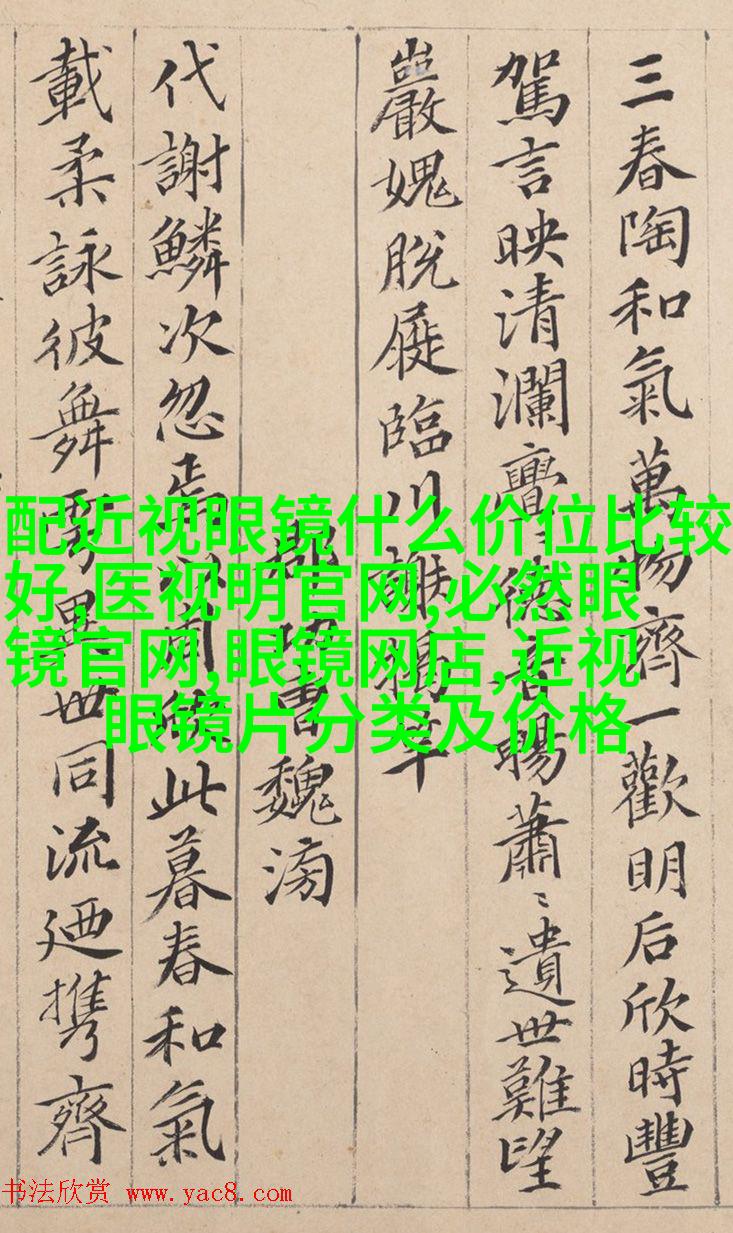 三春陶和氣萬物齊一歡明后欣時豐
駕言映清瀾亹〻德音暢蕭〻遺世難望
巖媿脫屣臨川謝揭竿
郡功曹魏滂
代謝鱗次忽焉以周欣此暮春和氣
載柔詠彼舞雩異世同流廼携齊
配近视眼镜什么价位比较
好,医视明官网,必然眼
镜官网,眼镜网店,近视
眼镜片分类及价格
书法欣赏 www.yac8.com